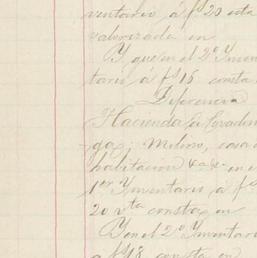 ventario á fs 20 esta
valorizada en
Y, que en el 2º Ymen
tario á fs 16 consta
Diferencia
Hacienda La Gradens
gas; Molino, casa de
habitacion &a &a en el
1er Ymentario á fs
20 vta consta, en
Y en el 2º Ymentario
á fs 18 consta en